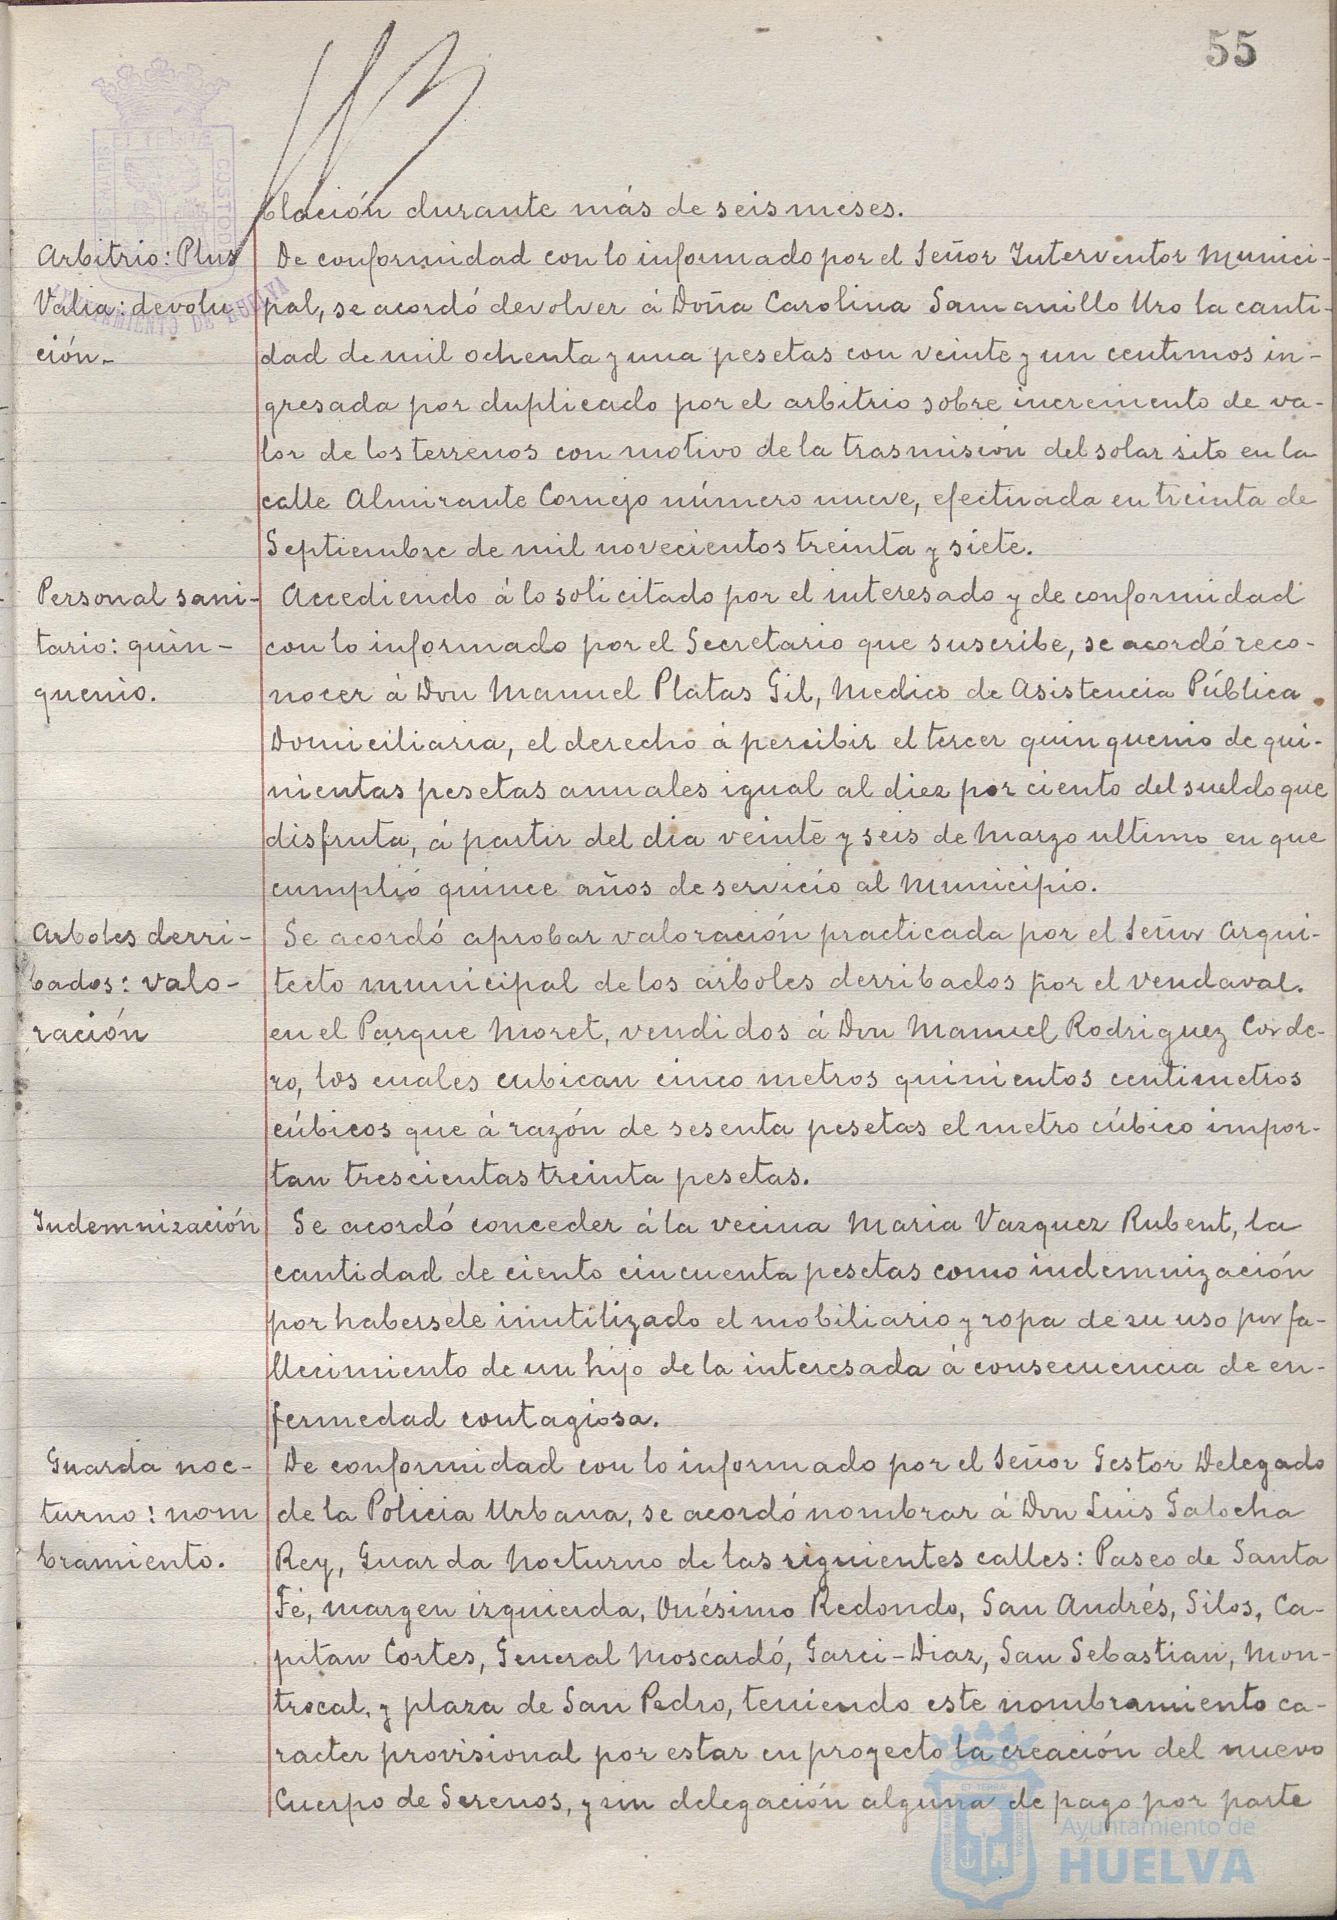 55
blación durante más de seis meses.
Arbitrio: Plus
Valia: devolu
ción.-
De conformidad con lo informado por el Señor Interventor Munici-
pal, se acordó devolver á Doña Carolina Samanillo Uro la canti-
dad de mil ochenta y una pesetas con veinte y un centimos in-
gresada por duplicado por el arbitrio sobre incremento de va-
lor de los terrenos con motivo de la trasmisión del solar sito en la
calle Almirante Cornejo número nueve, efectuada en treinta de
Septiembre de mil novecientos treinta y siete.
Personal sani-
tario: quin-
quenio.
Accediendo á lo solicitado por el interesado y de conformidad
con lo informado por el Secretario que suscribe, se acordó reco-
nocer á Don Manuel Platas Gil, Medico de Asistencia Pública
Domiciliaria, el derecho á percibir el tercer quinquenio de qui-
nientas pesetas anuales igual al diez por ciento del sueldo que
disfruta, á partir del dia veinte y seis de Marzo ultimo en que
cumplió quince años de servicio al Municipio.
Arboles derri-
bados: valo-
ración
Se acordó aprobar valoración practicada por el Señor Arqui-
tecto municipal de los arboles derribados por el vendaval.
en el Parque Moret, vendidos á Don Manuel Rodriguez Corde-
ro, los cuales cubican cinco metros quinientos centimetros
cúbicos que á razón de sesenta pesetas el metro cúbico impor-
tan trescientas treinta pesetas.
Indemnización
Se acordó conceder á la vecina Maria Vazquez Rubent, la
cantidad de ciento cincuenta pesetas como indemnización
por habersele inutilizado el mobiliario y ropa de su uso por fa-
llecimiento de un hijo de la interesada á consecuencia de en-
fermedad contagiosa.
Guarda noc-
turno: nom
bramiento.
De conformidad con lo informado por el Señor Gestor Delegado
de la Policia Urbana, se acordó nombrar á Don Luis Galocha
Rey, Guarda Nocturno de las siguientes calles: Paseo de Santa
Fé, margen izquierda, Onésimo Redondo, San Andrés, Silos, Ca-
pitan Cortes, General Moscardó, Garci-Diaz, San Sebastian, Mon-
trocal, y plaza de San Pedro, teniendo este nombramiento ca-
racter provisional por estar en proyecto la creación del nuevo
Cuerpo de Serenos, y sin delegación alguna de pago por parte
Ayuntamiento de
HUELVA